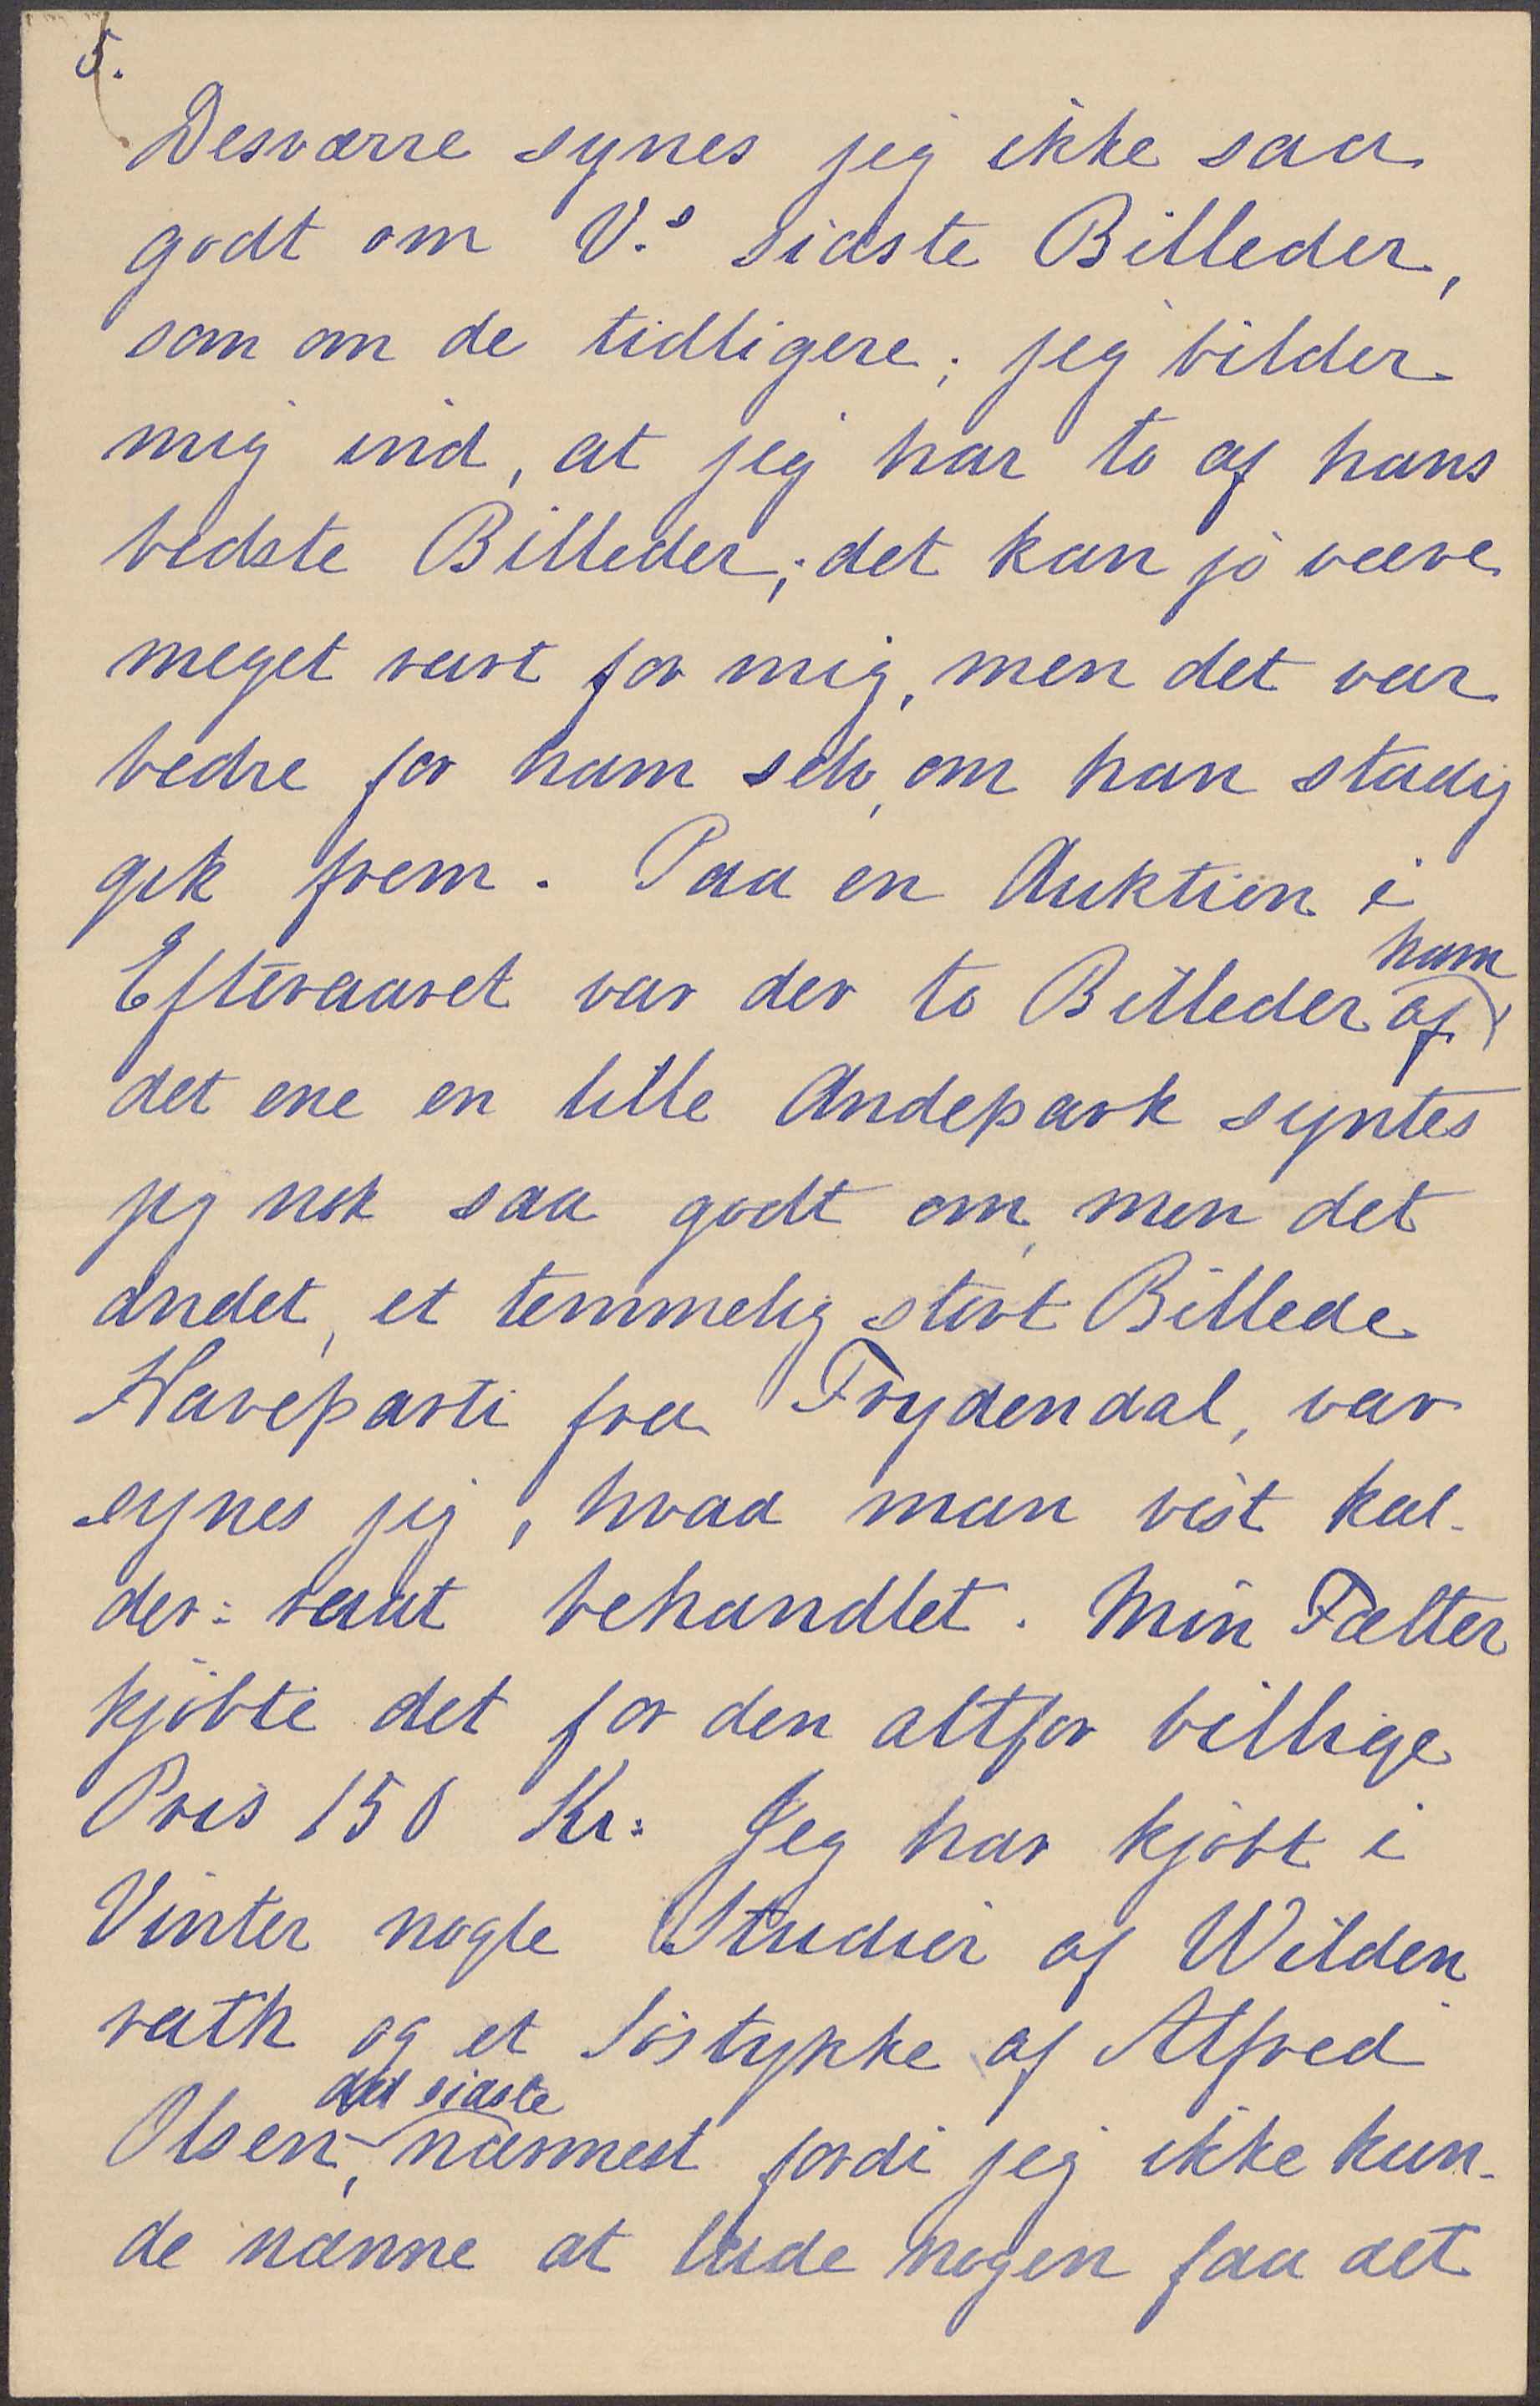 5.
Desværre synes jeg ikke saa
godt om V.s sidste Billeder,
som om de tidligere; jeg bilder
mig ind, at jeg har to af hans
bedste Billeder; det kan jo være
meget rart for mig, men det var
bedre for ham selv, om han stadig
gik frem. Paa en Auktion i
ham
Efteraaret var der to Billeder af
det ene en lille Andepark syntes
jeg nok saa godt om, men det
andet, et temmelig stort Billede
Haveparti fra Frydendal, var
synes jeg, hvad man vist kal-
der: raat behandlet. Min Fætter
kjøbte det for den altfor billige
Pris 150 Kr: Jeg har kjøbt i
Vinter nogle Studier af Wilden
rath og et Søstykke af Alfred
det sidste
Olsen, nærmest fordi jeg ikke kun-
de nænne at lade nogen faa det